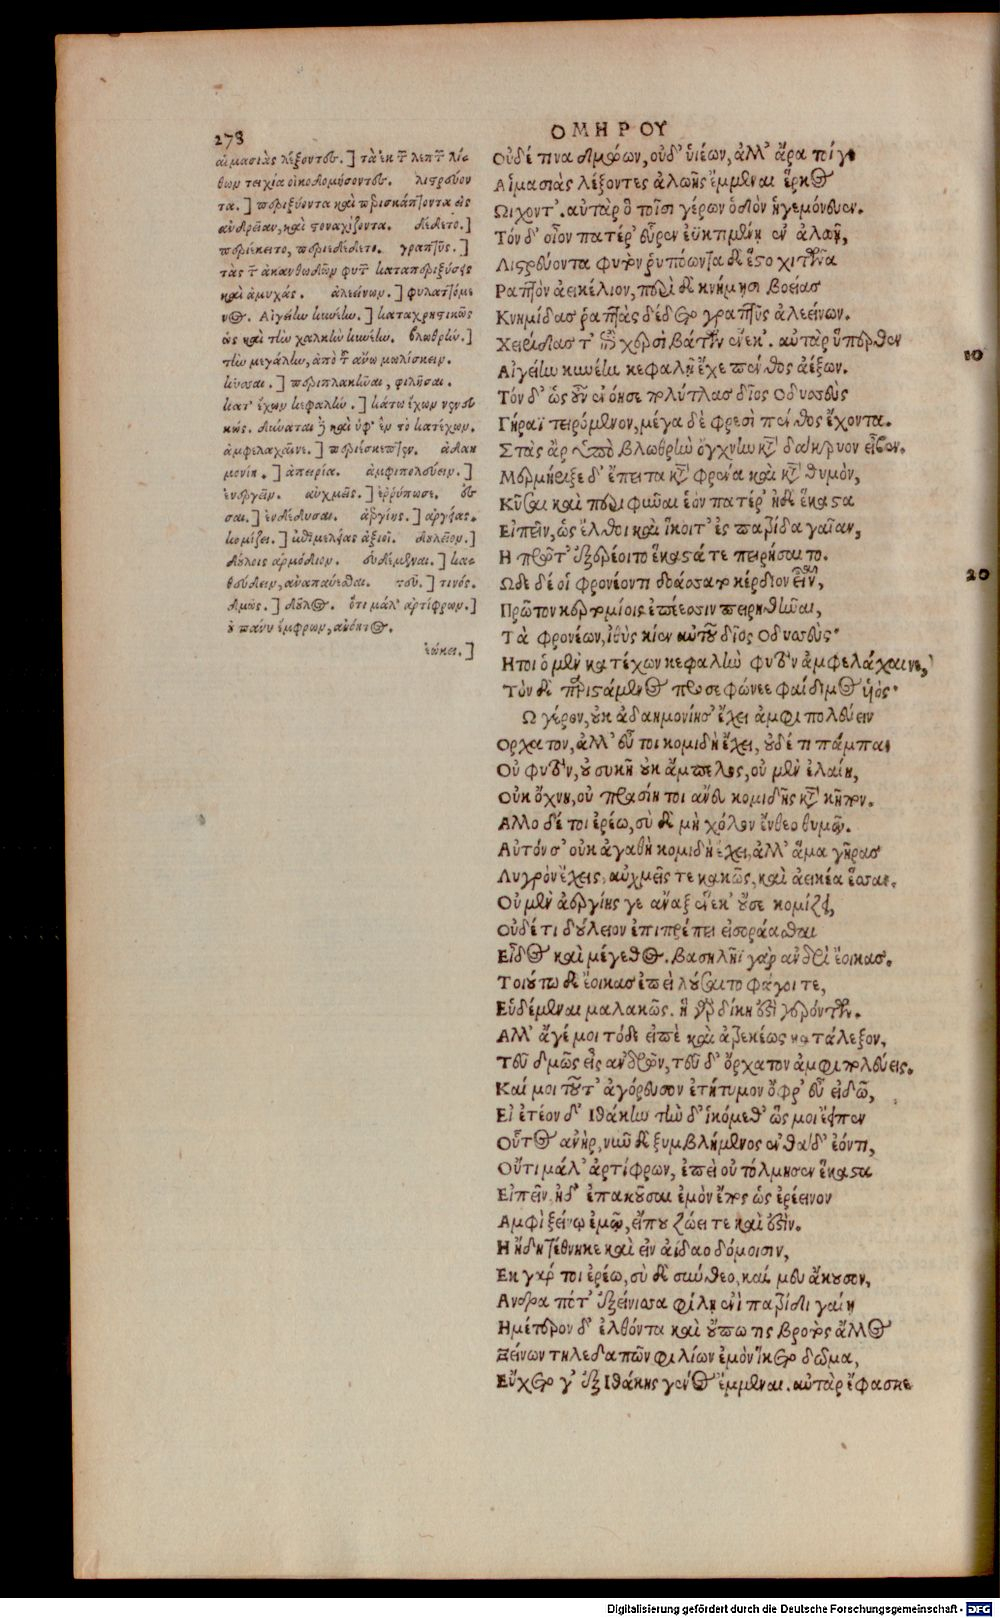 278
ΟΜΗΡΟΥ
αἱμασιὰς λέξοντες.] τὰ ἐκ τῶν λεπτῶν λί-
θων τειχία οἰκοδομήσοντες. λιστρεύον
τα.] περιξύοντα καὶ περισκάπτοντα ὡς
καὶ στοναχίζοντα. δέδετο.]
περιέκειτο, περιεδέδετο. γραπτῦς.]
τὰς τῶν ἀκανθωδῶν φυτῶν καταπεριξύσεις
καὶ ἀμυχάς. ἀλεείνων.] φυλαττόμε
νος. Αἰγείην κυνέην.] καταχρηστικῶς
ὡς καὶ τὴν χαλκῆν κυνέην. βλωθρήν.]
τὴν μεγάλην, ἀπὸ τοῦ ἄνω μολίσκειν.
κύσσαι.] περιπλακῆναι, φιλῆσαι.
κατ' ἔχων κεφαλήν.] κάτω ἔχων
δύναται δὲ καὶ ὑφ' ἓν τὸ κατέχων.
ἀμφελάχαινε.] περιέσκαπτεν. ἀδαη
μονίη.] ἀπειρία. ἀμφιπολεύειν.]
ἐνεργεῖν. αὐχμεῖς.] ἐρρύπωσε. ἕσ
σαι.] ἐνδέδυσαι. ἀεργίης.] ἀργίας.
κομίζει.] ἐπιμελείας ἀξιοῖ. δούλειον.]
δούλοις ἁρμόδιον. εὑδέμεναι.] κα-
θεύδειν, ἀναπαύεσθαι. τοῦ.] τινός.
δμώς.] δοῦλος. ὅτι μάλ' ἀρτίφρων.]
ὁ πάνυ ἔμφρων, ἀνόητος.
ἐώκει.]
Οὐδέ τινα δμώων, οὐδ' υἱέων, ἀλλ' ἄρα τοίγε
Αἱμασιὰς λέξοντες ἀλωῆς ἔμμεναι ἕρκος
Ωιχοντ'. αὐτὰρ ὁ τοῖσι γέρων ὁδὸν ἡγεμόνευεν.
Τόν δ' οἶον πατέρ' εὗρεν ἐϋκτιμένῃ ἐν ἀλωῇ,
Λιστρεύοντα φυτὸν ῥυπόωντα δὲ ἕστο χιτῶνα
Ραπτὸν ἀεικέλιον, περὶ δὲ κνήμῃσι βοείας
Κνημίδας ῥαπτὰς δέδετο γραπτῦς ἀλεείνων.
Χειρίδας τ' ἐπὶ χερσὶ βάτων ἕνεκ'. αὐτὰρ ὕπερθεν
10
Αἰγείην κυνέην κεφαλῇ ἔχε πένθος ἀέξων.
Τόν δ' ὡς οὖν ἐνόησε πολύτλας δῖος Οδυσσεὺς
Γήραϊ τειρόμενον, μέγα δὲ φρεσὶ πένθος ἔχοντα.
Στὰς ἄρ ὑπὸ βλωθρὴν ὄγχνην κατὰ δάκρυον εἶβεν.
Μερμήριξε δ' ἔπειτα κατὰ φρένα καὶ κατὰ θυμὸν,
Κῦσαι καὶ περιφῦναι ἑὸν πατέρ' ἠδὲ ἕκαστα
Εἰπεῖν, ὡς ἔλθοι καὶ ἵκοιτ' ἐς πατρίδα γαῖαν,
Η πρῶτ' ἐξερέοιτο ἕκαστά τε πειρήσαιτο.
20
Ωδε δέ οἱ φρονέοντι δοάσσατο κέρδιον εἶναι,
Πρῶτον κερτομίοις ἐπέεσσιν πειρηθῆναι,
Τὰ φρονέων, ἰθὺς κίεν αὐτοῦ δῖος Οδυσσεὺς·
Ητοι ὁ μὲν κατέχων κεφαλὴν φυτὸν ἀμφελάχαινε,
Τὸν δὲ παριστάμενος προσεφώνεε φαίδιμος υἱός·
Ω γέρον, οὐκ ἀδαημονίης' ἔχει ἀμφιπολεύειν
Ορχατον, ἀλλ' εὖ τοι κομιδὴ ἔχει, οὐδέ τι πάμπαν
Οὐ φυτὸν, οὐ συκῆ οὐκ ἄμπελος, οὐ μὲν ἐλαίη,
Οὐκ ὄχνη, οὐ πρασίη τοι ἄνευ κομιδῆς κατὰ κῆπον.
Αλλο δέ τοι ἐρέω, σὺ δὲ μὴ χόλον ἔνθεο θυμῷ.
Αὐτόν σ' οὐκ ἀγαθὴ κομιδὴ ἔχει, ἀλλ' ἅμα γῆρας
Λυγρὸν ἔχεις, αὐχμεῖς τε κακῶς, καὶ ἀεικέα ἕσσαι.
Οὐ μὲν ἀεργίης γε ἄναξ ἕνεκ' οὔ σε κομίζει,
Οὐδέ τι δούλειον ἐπιπρέπει εἰσοράασθαι
Εἶδος καὶ μέγεθος. βασιλῆϊ γὰρ ἀνδρὶ ἔοικας.
Τοιούτῳ δὲ ἔοικας ἐπεὶ λούσαιτο φάγοι τε,
Εὑδέμεναι μαλακῶς. ἡ γὰρ δίκη ἐστὶ γερόντων.
Αλλ' ἄγέ μοι τόδε εἰπὲ καὶ ἀτρεκέως κατάλεξον,
Τεῦ δμῶς εἶς ἀνδρῶν, τεῦ δ' ὄρχατον ἀμφιπολεύεις.
Καί μοι τοῦτ' ἀγόρευσον ἐτήτυμον ὄφρ' εὖ εἰδῶ,
Εἰ ἐτέον δ' Ιθάκην τὴν δ' ἱκόμεθ' ὥς μοι ἔειπεν
Οὗτος ἀνὴρ, νῦν δὲ ξυμβλήμενος ἐνθάδ' ἰόντι,
Οὔτι μάλ' ἀρτίφρων, ἐπεὶ οὐ τόλμησεν ἕκαστα
Εἰπεῖν ἠδ' ἐπακοῦσαι ἐμὸν ἔπος ὡς ἐρέεινον
Αμφὶ ξείνῳ ἐμῷ, εἴ που ζώει τε καὶ ἐστὶν.
Η ἤδη τέθνηκε καὶ εἰν ἀΐδαο δόμοισιν,
Εκ γάρ τοι ἐρέω, σὺ δὲ σύνθεο, καί μευ ἄκουσον,
Ανδρα πότ' ἐξείνισσα φίλῃ ἐνὶ πατρίδι γαίῃ
Ημέτερον δ' ἐλθόντα καὶ οὔπω τις βροτὸς ἄλλος
Ξείνων τηλεδαπῶν φιλίων ἐμὸν ἵκετο δῶμα,
Εὔχετο γ' ἐξ Ιθάκης γένος ἔμμεναι. αὐτὰρ ἔφασκε
Digitalisierung gefördert durch die Deutsche Forschungsgemeinschaft - DFG